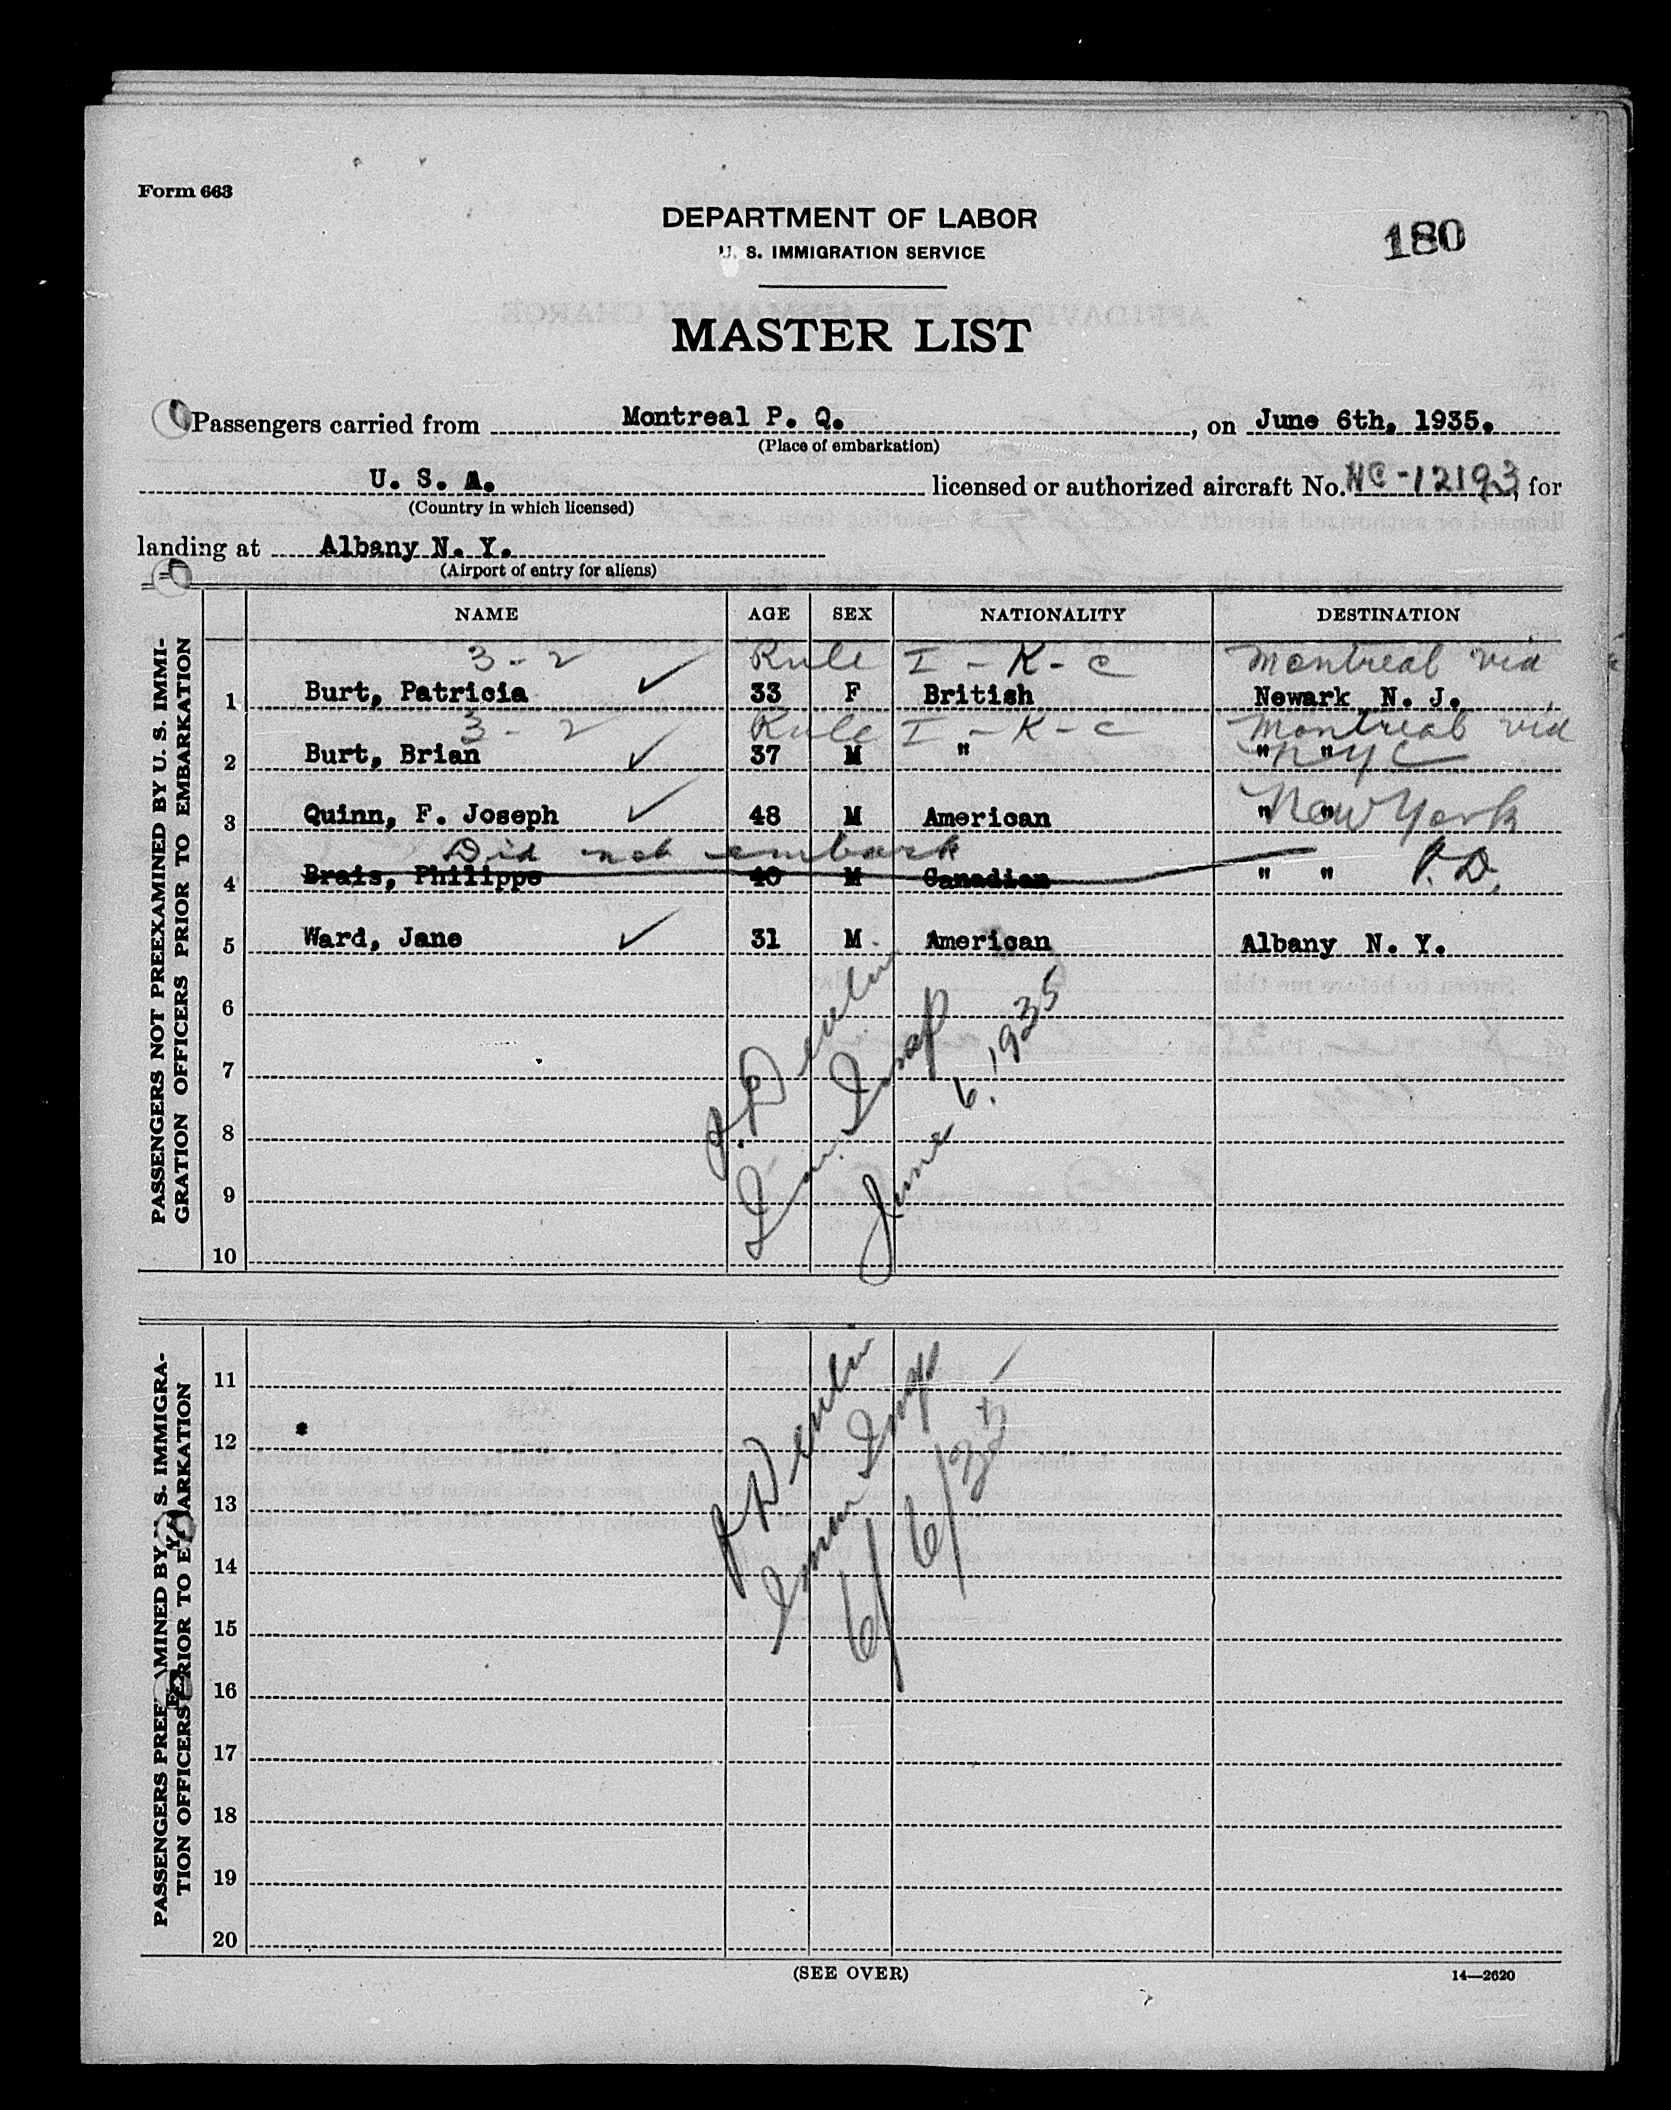 Form 663
DEPARTMENT OF LABOR
U. S. IMMIGRATION SERVICE
180
MASTER LIST
Passengers carried from Montreal P. Q., on June 6th, 1935.
(Place of embarkation)
U. S. A. licensed or authorized aircraft No. NC-12193, for
(Country in which licensed)
landing at Albany N. Y.
(Airport of entry for aliens)
NAME AGE SEX NATIONALITY DESTINATION
PASSENGERS NOT PREEXAMINED BY U. S. IMMI-
GRATION OFFICERS PRIOR TO EMBARKATION
3-2 ✓ Rule I-K-C Montreal via
1 Burt, Patricia 33 F British Newark N. J.
3-2 Rule I-K-C Montreal via
2 Burt, Brian ✓ 37 M " " " NYC
3 Quinn, F. Joseph ✓ 48 M American " " New York
Did not embark
4 Brais, Philippe 40 M Canadian " " P. D.
5 Ward, Jane ✓ 31 M American Albany N. Y.
6
7
8
9
10
Imm. Insp
June 6, 1935
PASSENGERS PREE MINED BY S. IMMIGRA-
TION OFFICERS PRIOR TO E ARKATION
11
12
13
14
15
16
17
18
19
20
Imm Insp
6/6/35
(SEE OVER)
14—2620